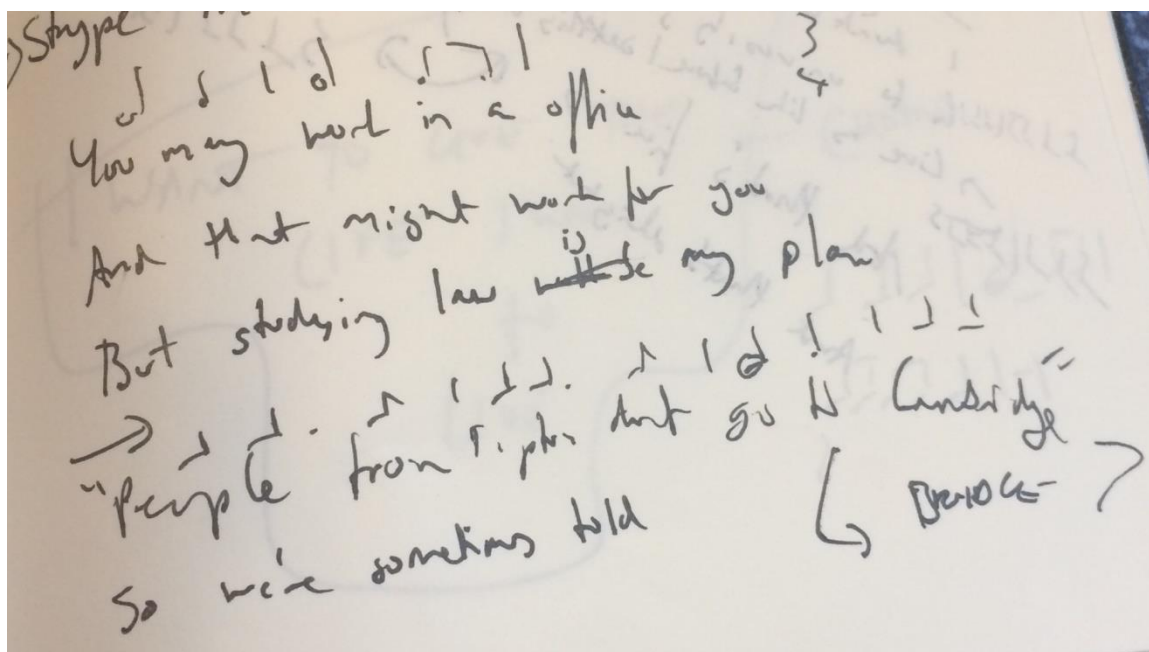 Skype
3
4
You may work in a office
And that might work for you
But studying law is my plan
"People from Tipton don't go to Cambridge"
BRIDGE
So we're sometimes told